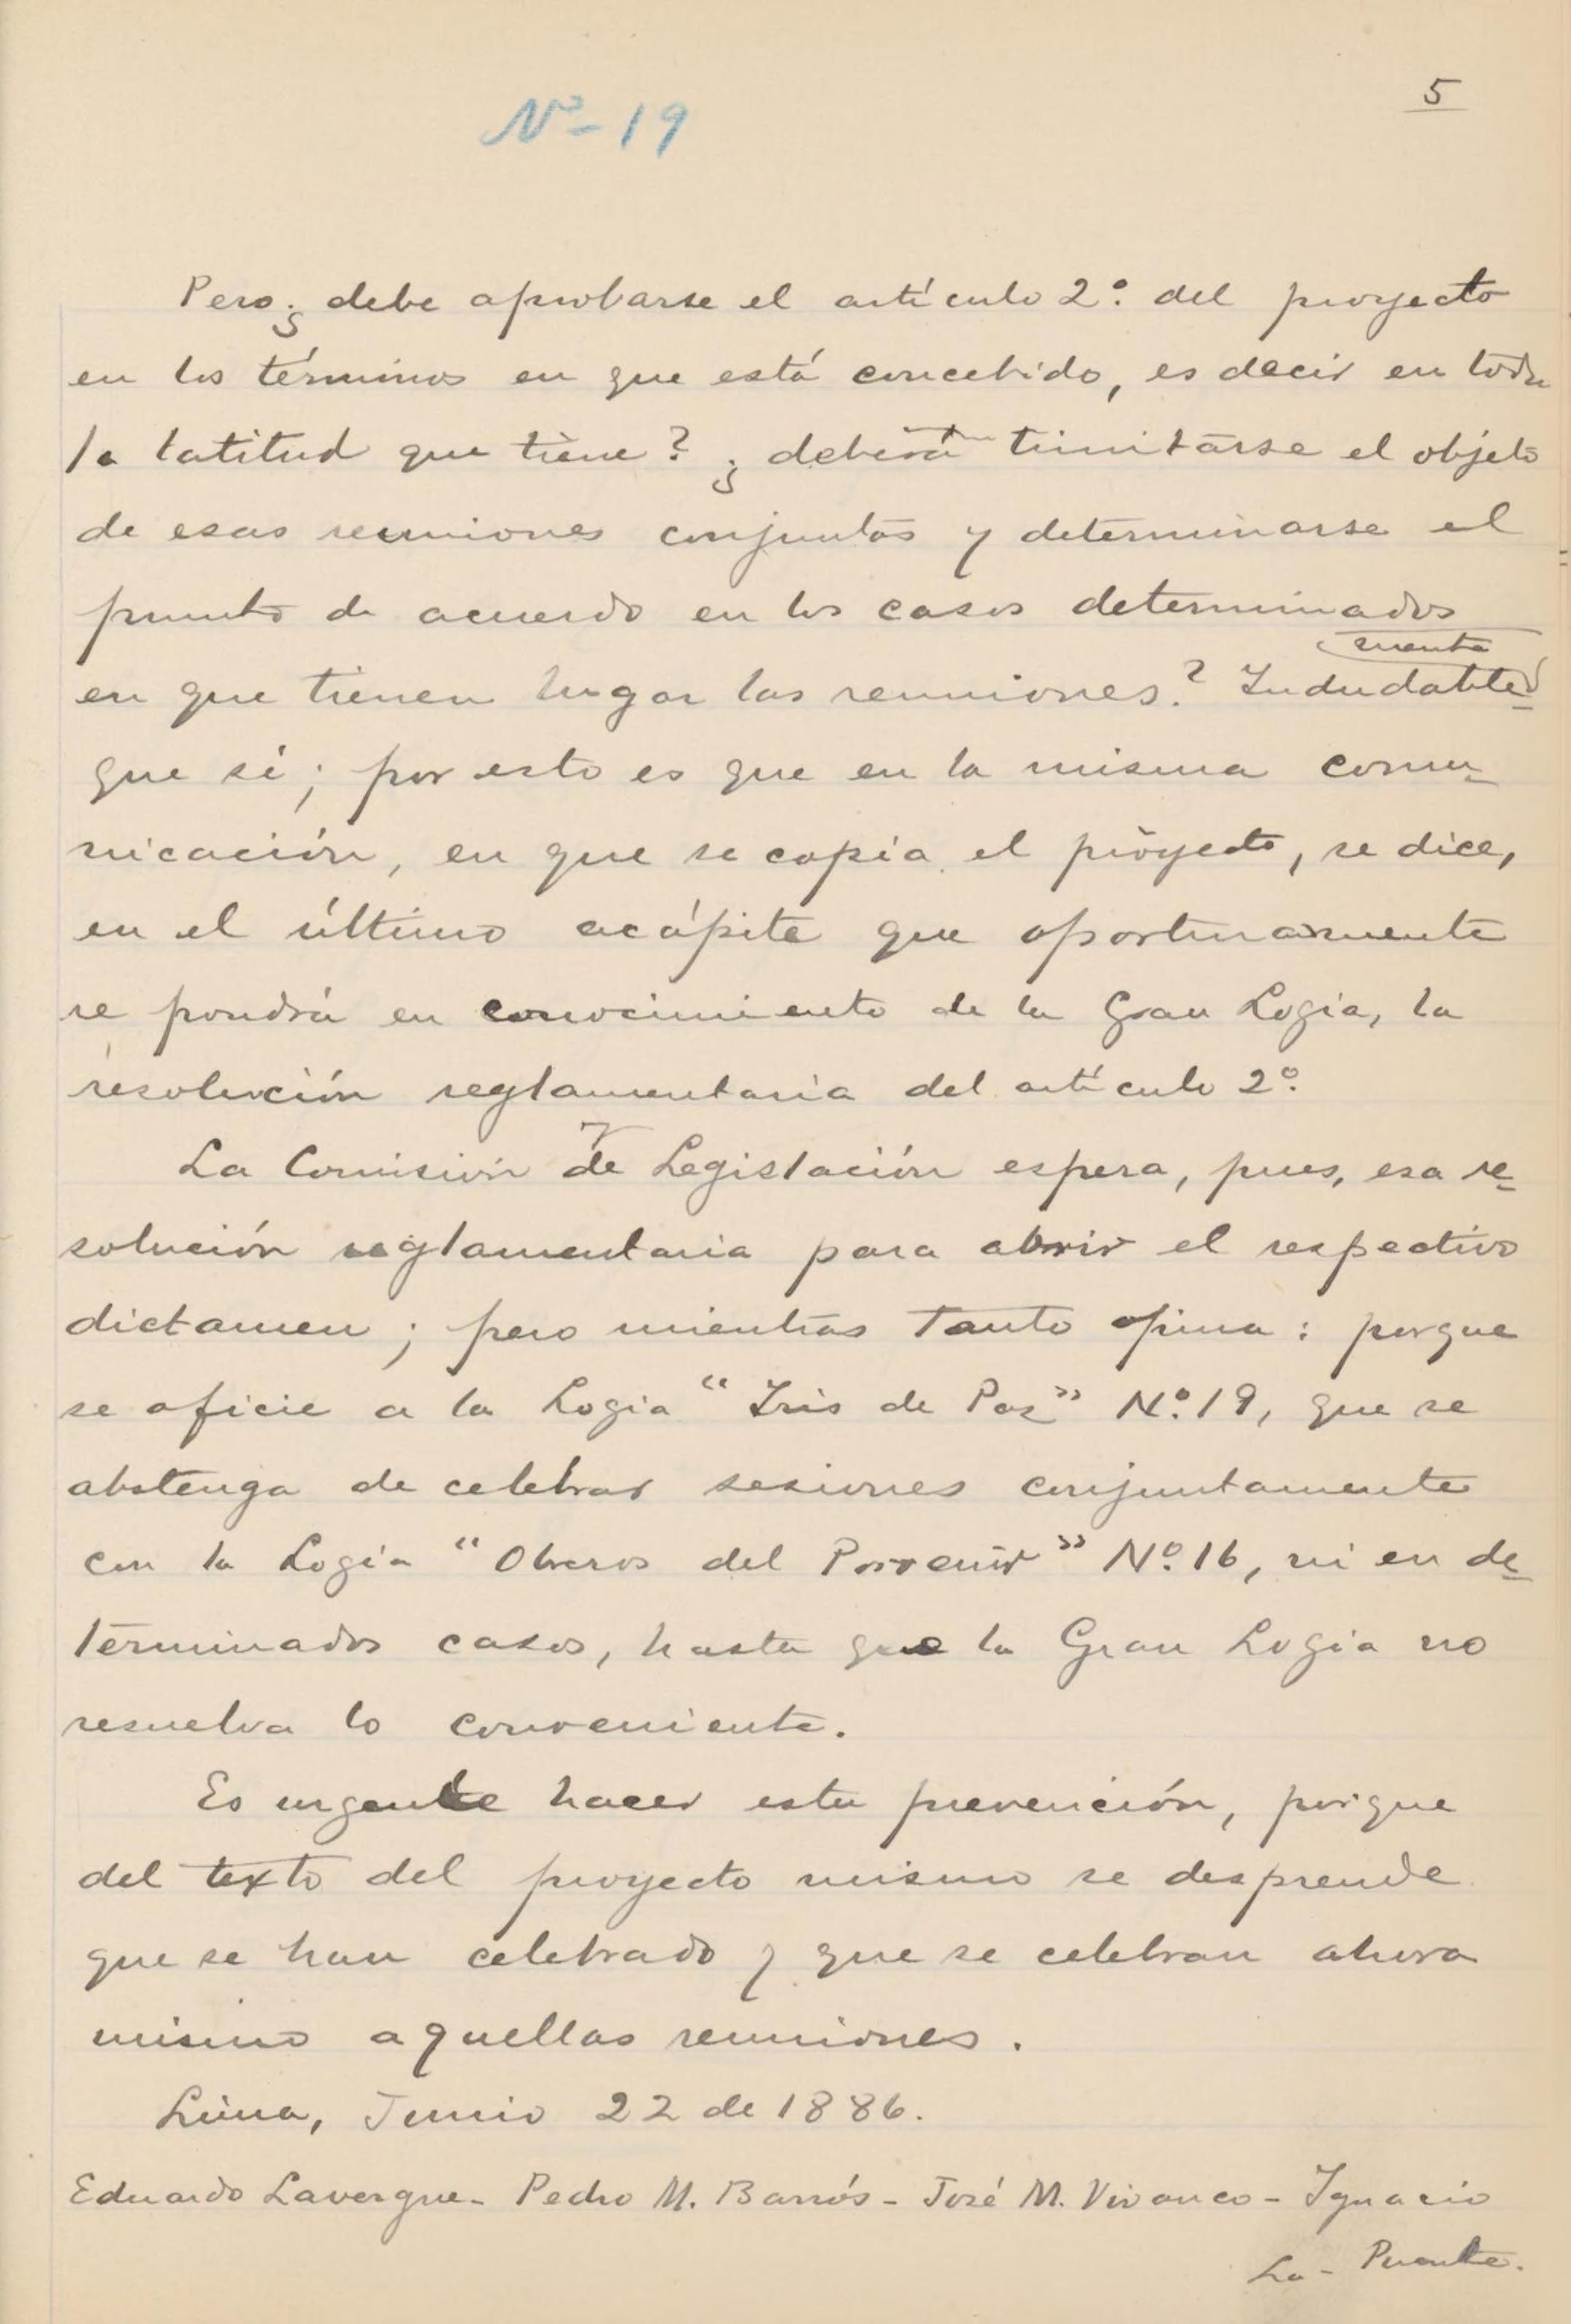 5
Nº-19
Pero ¿ debe aprobarse el artículo 2º. del proyecto
en los términos en que está concebido, es decir en toda
la latitud que tiene? ¿ deberá limitarse el objeto
de esas reuniones conjuntas y determinarse el
punto de acuerdo en los casos determinados
en que tienen lugar las reuniones? Indudable-
mente
que sí; por esto es que en la misma comu-
nicación, en que se copia el proyecto, se dice,
en el último acápite que oportunamente
se pondrá en conocimiento de la Gran Logia, la
resolución reglamentaria del artículo 2º.
La Comisión de Legislación espera, pues, esa re-
solución reglamentaria para abrir el respectivo
dictamen; pero mientras tanto opina: porque
se oficie a la Logia "Iris de Paz" Nº. 19, que se
abstenga de celebrar sesiones conjuntamente
con la Logia "Obreros del Porvenir" Nº. 16, ni en de-
terminados casos, hasta que la Gran Logia no
resuelva lo conveniente.
Es urgente hacer esta prevención, porque
del texto del proyecto mismo se desprende
que se han celebrado y que se celebran ahora
mismo aquellas reuniones.
Lima, Junio 22 de 1886.
Eduardo Lavergne- Pedro M. Barrós- José M. Vivanco- Ignacio
La- Puente.